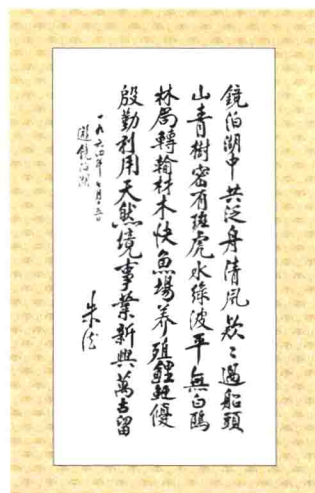 鏡泊湖中共泛舟清風欸〻過船頭
山青樹密有斑虎水綠波平無白鷗
林局轉輸材木快魚場养殖鯉鯽優
殷勤利用天然境事業新興萬古留
一九六四年七月
遊鏡泊湖
朱德